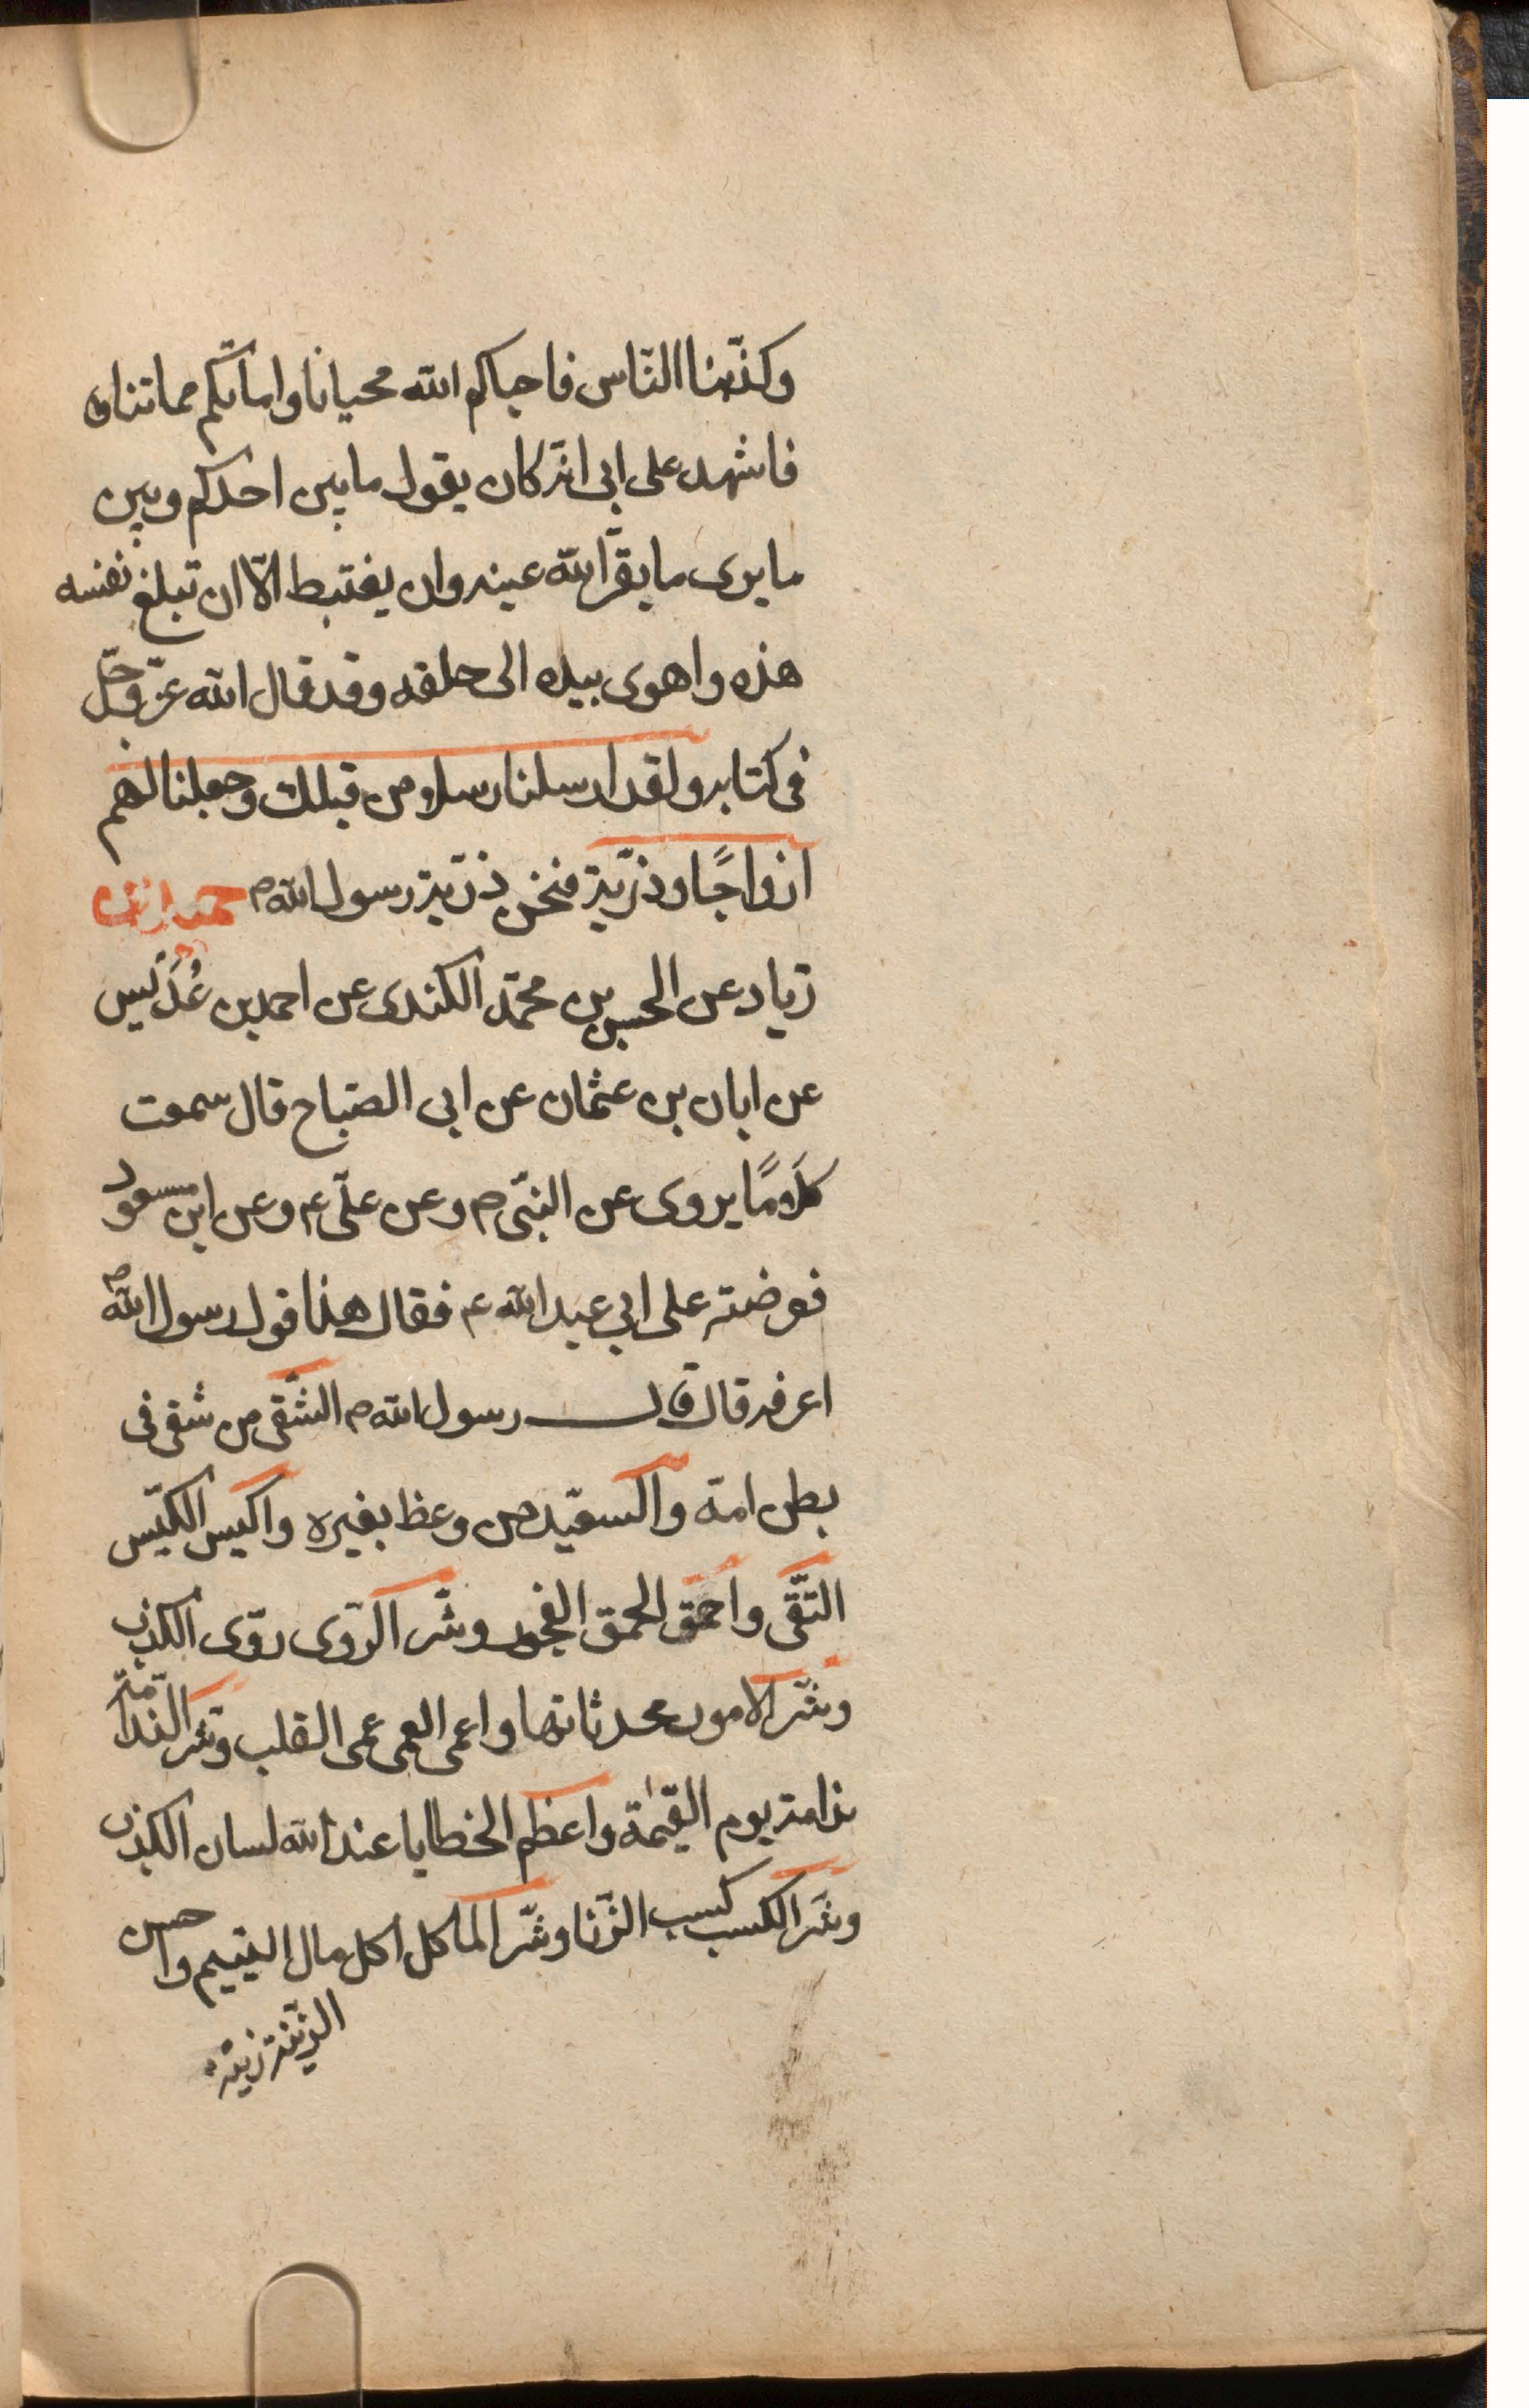 وكذّبنا الناس فاحياكم الله محيانا واماتكم مماتنا
فاشهد على ابى انّه كان يقول ما بين احدكم وبين
ما يرى ما يقرّ الله عينه وان يغتبط الّا ان تبلغ نفسه
هذه واهوى بيده الى حلقه وقد قال الله عزّ وجلّ
فى كتابه ولقد ارسلنا رسلا من قبلك وجعلنا لهم
ازواجًا وذرّية فنحن ذرّية رسول الله ص حميد بن
زياد عن الحسن بن محمّد الكندى عن احمد بن عُدَيس
عن ابان بن عثمان عن ابى الصّباح قال سمعت
كلَامًا يروى عن النبّى ص وعن علّى ع وعن ابن مسعود
فعرضته على ابى عبد الله ع فقال هذا قول رسول الله ص
اعرفه قال قال رسول الله ص الشّقى من شقى فى
بطن امّه والسعيد من وعظ بغيره واكيس الكيّس
التّقى واحمق الحمق الفجور وشّر الرّوى روّى الكذب
وشّر الامور محدثاتها واعمى العمى عمى القلب وشّر النّدامّة
ندامة يوم القيٰمة واعظم الخطايا عند الله لسان الكذب
وشّر الكسب كسب الزّنا وشّر الماكل اكل مال اليتيم واحسن
الزّينة زينة